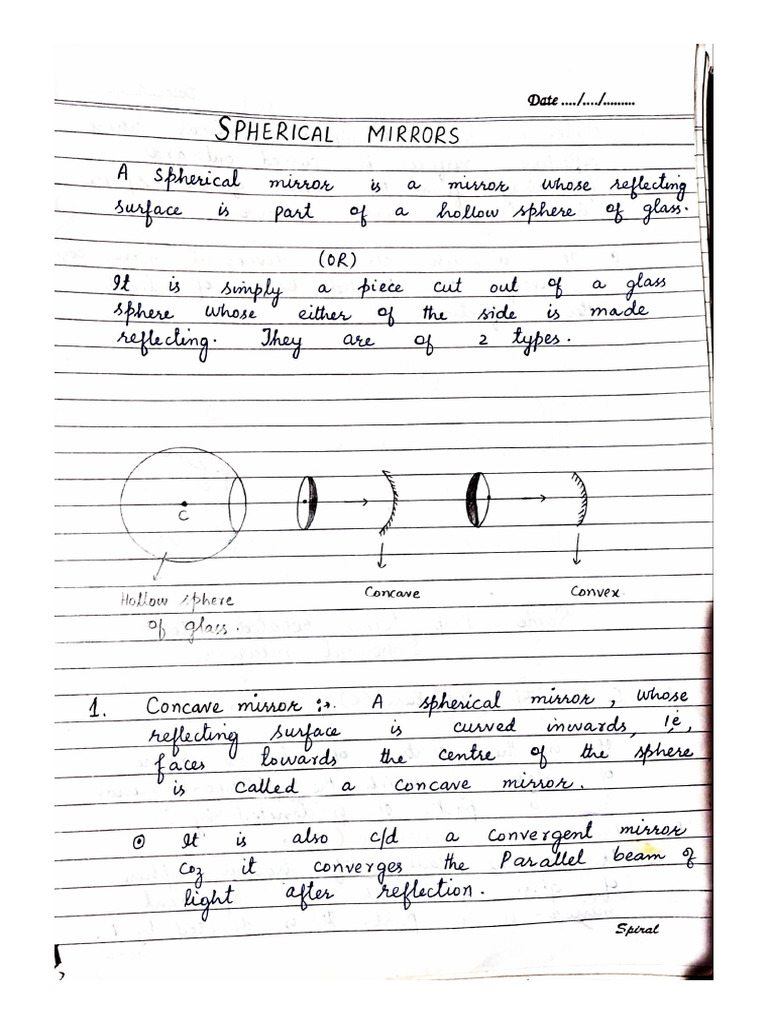 Date ..../..../.........
SPHERICAL MIRRORS
A spherical mirror is a mirror whose reflecting
surface is part of a hollow sphere of glass.
(OR)
It is simply a piece cut out of a glass
sphere whose either of the side is made
reflecting. They are of 2 types.
C
Hollow sphere
of glass.
Concave
Convex
1. Concave mirror :→. A spherical mirror, whose
reflecting surface is curved inwards, ie,
faces towards the centre of the sphere
is called a concave mirror.
⊙ It is also c/d a convergent mirror
coz it converges the Parallel beam of
light after reflection.
Spiral